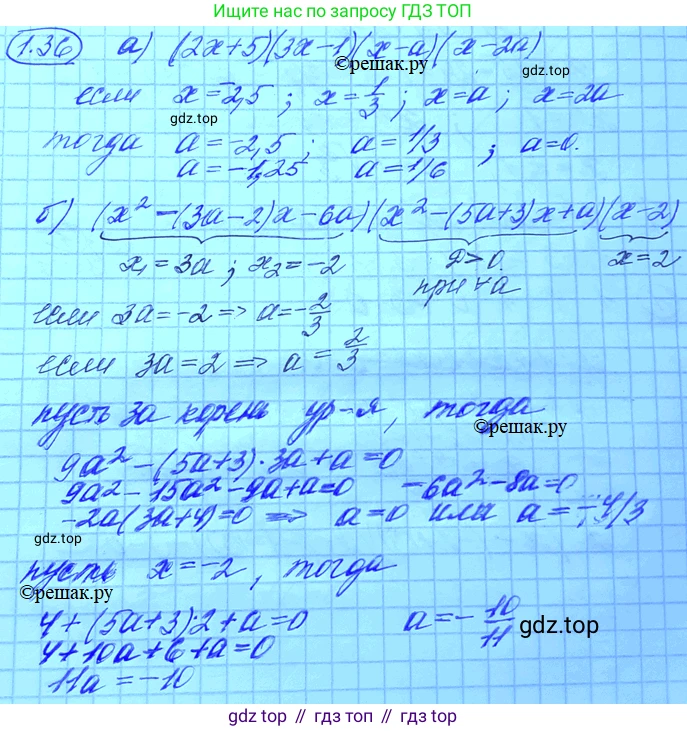 Ищите нас по запросу ГДЗ ТОП
1.36 а) (2x+5)(3x-1)(x-a)(x-2a)
©решак.ру
gdz.top
если x=-2,5; x=1/3; x=a; x=2a
тогда a=-2,5; a=1/3; a=0.
a=-1,25 a=1/6
б) (x²-(3a-2)x-6a)(x²-(5a+3)x+a)(x-2)
x₁=3a; x₂=-2 D>0 x=2
при ∀a
если 3a=-2 => a=-2/3
если 3a=2 => a=2/3
пусть 3a корень ур-я, тогда
©решак.ру
9a²-(5a+3)·3a+a=0
9a²-15a²-9a+a=0 -6a²-8a=0
-2a(3a+4)=0 => a=0 или a=-4/3
gdz.top
пусть x=-2, тогда
©решак.ру
4+(5a+3)·2+a=0 a=-10/11
gdz.top
4+10a+6+a=0
11a=-10
gdz.top // гдз топ // gdz.top